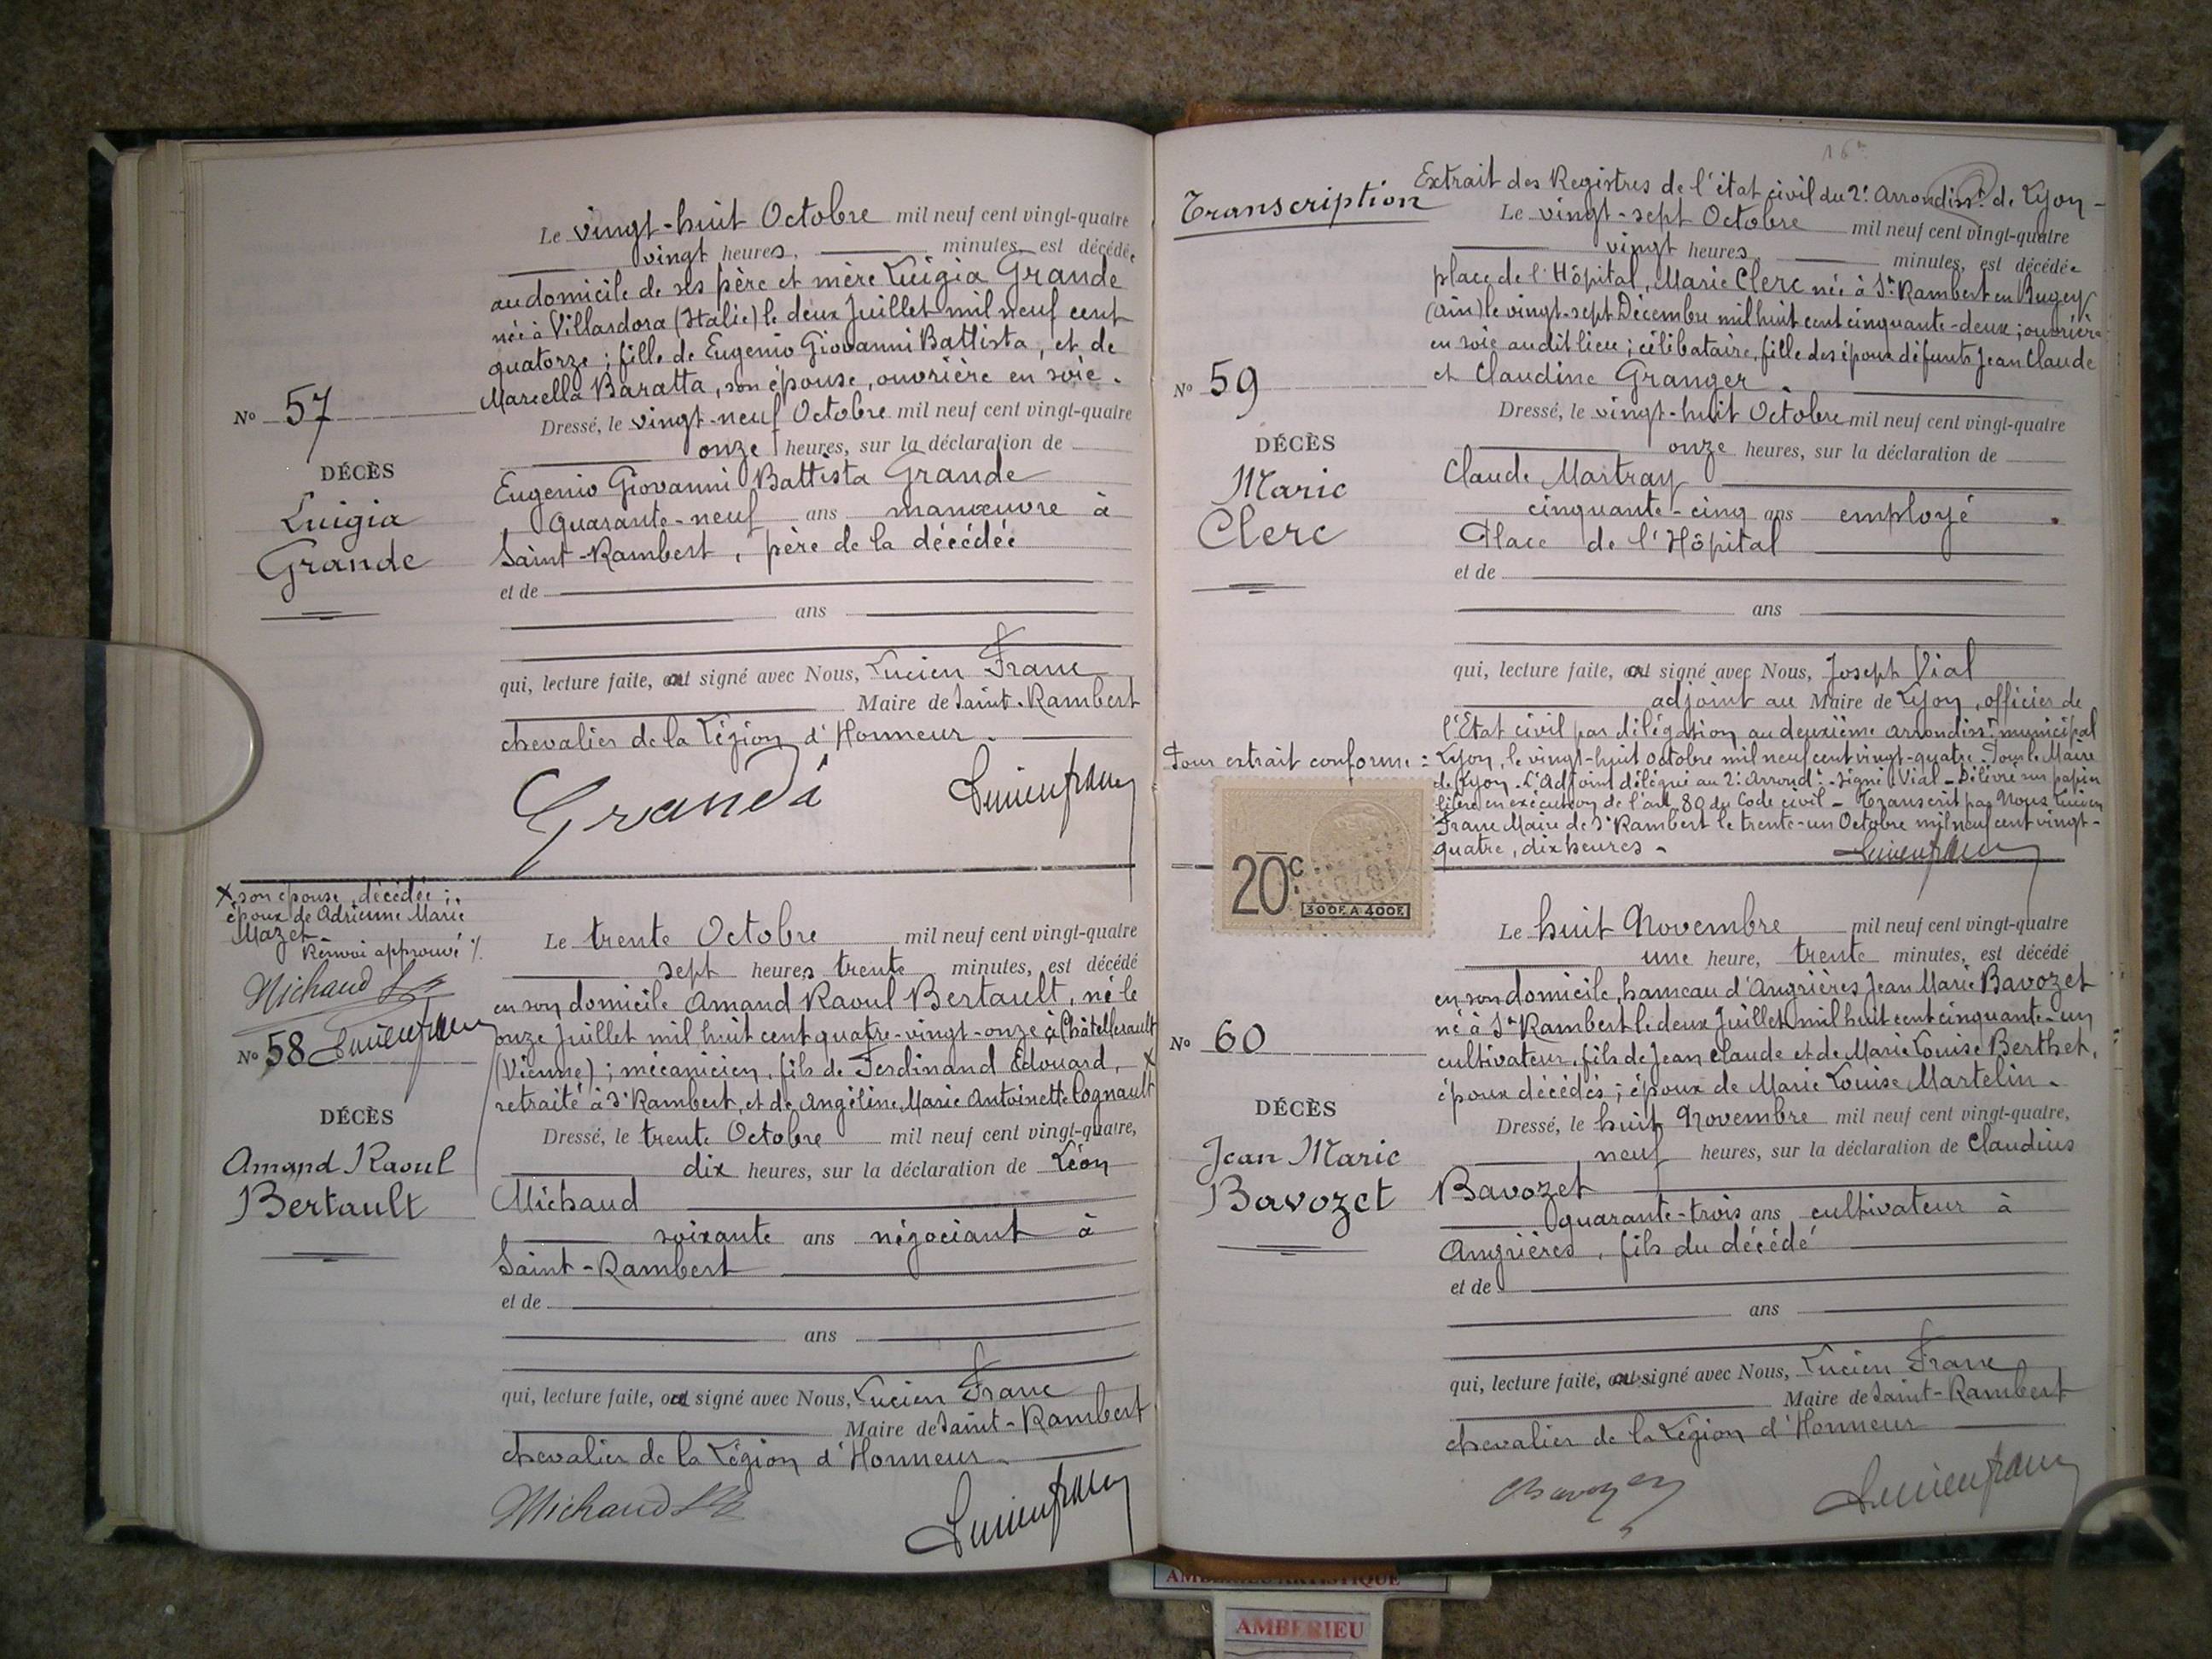 Le vingt-huit Octobre mil neuf cent vingt-quatre
vingt heures, minutes, est décédée
au domicile de ses père et mère Luigia Grande
née à Villardora (Italie) le deux Juillet mil neuf cent
quatorze ; fille de Eugenio Giovanni Battista, et de
Marcella Baratta, son épouse, ouvrière en soie.
Nº 57
Dressé, le vingt-neuf Octobre mil neuf cent vingt-quatre
onze heures, sur la déclaration de
DÉCÈS
Luigia
Grande
Eugenio Giovanni Battista Grande
Quarante-neuf ans manœuvre à
Saint-Rambert, père de la décédée
et de
ans
qui, lecture faite, a signé avec Nous, Lucien Franc
Maire de Saint-Rambert
chevalier de la Légion d'Honneur.
Granda
Lucien Franc
X son épouse, décédée ;
époux de Adrienne Marie
Mazet
Renvoi approuvé ./.
Michaud
Lucien Franc
Le trente Octobre mil neuf cent vingt-quatre
sept heures trente minutes, est décédé
en son domicile Amand Raoul Bertault, né le
onze Juillet mil huit cent quatre-vingt-onze à Châtellerault
(Vienne) ; mécanicien, fils de Ferdinand Edouard, X
retraité à St Rambert, et de Angéline Marie Antoinette Cognault
Nº 58
DÉCÈS
Amand Raoul
Bertault
Dressé, le trente Octobre mil neuf cent vingt-quatre,
dix heures, sur la déclaration de Léon
Michaud
soixante ans négociant à
Saint-Rambert
et de
ans
qui, lecture faite, a signé avec Nous, Lucien Franc
Maire de Saint-Rambert
chevalier de la Légion d'Honneur.
Michaud
Lucien Franc
Transcription
Extrait des Registres de l'état civil du 2e Arrondisst de Lyon -
Le vingt-sept Octobre mil neuf cent vingt-quatre
vingt heures minutes, est décédée
place de l'Hôpital, Marie Clerc née à St Rambert en Bugey
(Ain) le vingt-sept Décembre mil huit cent cinquante-deux ; ouvrière
en soie audit lieu ; célibataire, fille des époux défunts Jean Claude
et Claudine Granger.
Nº 59
DÉCÈS
Marie
Clerc
Dressé, le vingt-huit Octobre mil neuf cent vingt-quatre
onze heures, sur la déclaration de
Claude Martray
cinquante-cinq ans employé
Place de l'Hôpital
et de
ans
qui, lecture faite, a signé avec Nous, Joseph Vial
adjoint au Maire de Lyon, officier de
l'Etat civil par délégation au deuxième arrondisst municipal
Pour extrait conforme : Lyon, le vingt-huit octobre mil neuf cent vingt-quatre. Pour le Maire
de Lyon. L'Adjoint délégué au 2e Arrondt - Signé : Vial - Délivré sur papier
libre en exécution de l'art. 80 du Code civil - Transcrit par Nous Lucien
Franc Maire de St Rambert le trente-un Octobre mil neuf cent vingt-
quatre, dix heures.
Lucien Franc
20c
300F A 400F
Le huit Novembre mil neuf cent vingt-quatre
une heure, trente minutes, est décédé
en son domicile, hameau d'Angrières Jean Marie Bavozet
né à St Rambert le deux Juillet mil huit cent cinquante-un
cultivateur, fils de Jean Claude et de Marie Louise Berthet,
époux décédés ; époux de Marie Louise Martelin.
Nº 60
DÉCÈS
Jean Marie
Bavozet
Dressé, le huit Novembre mil neuf cent vingt-quatre,
neuf heures, sur la déclaration de Claudius
Bavozet
quarante-trois ans cultivateur à
Angrières, fils du décédé
et de
ans
qui, lecture faite, a signé avec Nous, Lucien Franc
Maire de Saint-Rambert
chevalier de la Légion d'Honneur
Lucien Franc
AMBERIEU ARTISTIQUE
AMBERIEU